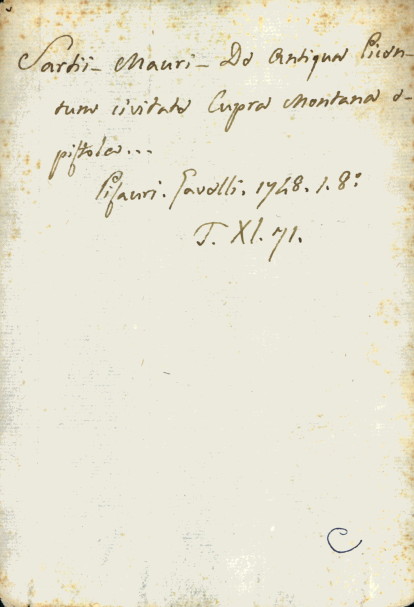 Sartii - Mauri - De Antiqua Picen-
tum civitate Cupra Montana e-
pistola...
Pisauri. Gavelli. 1748. 1. 8°
T. XI. 71.
C